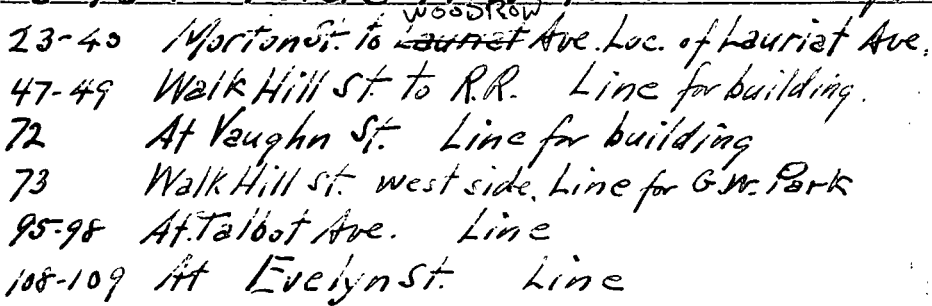 WOODROW
23-40 Morton St. to Lauriat Ave. Loc. of Lauriat Ave.
47-49 Walk Hill St. to R.R. Line for building.
72 At Vaughn St. Line for building
73 Walk Hill St. west side. Line for G.W. Park
95-98 At Talbot Ave. Line
108-109 At Evelyn St. Line